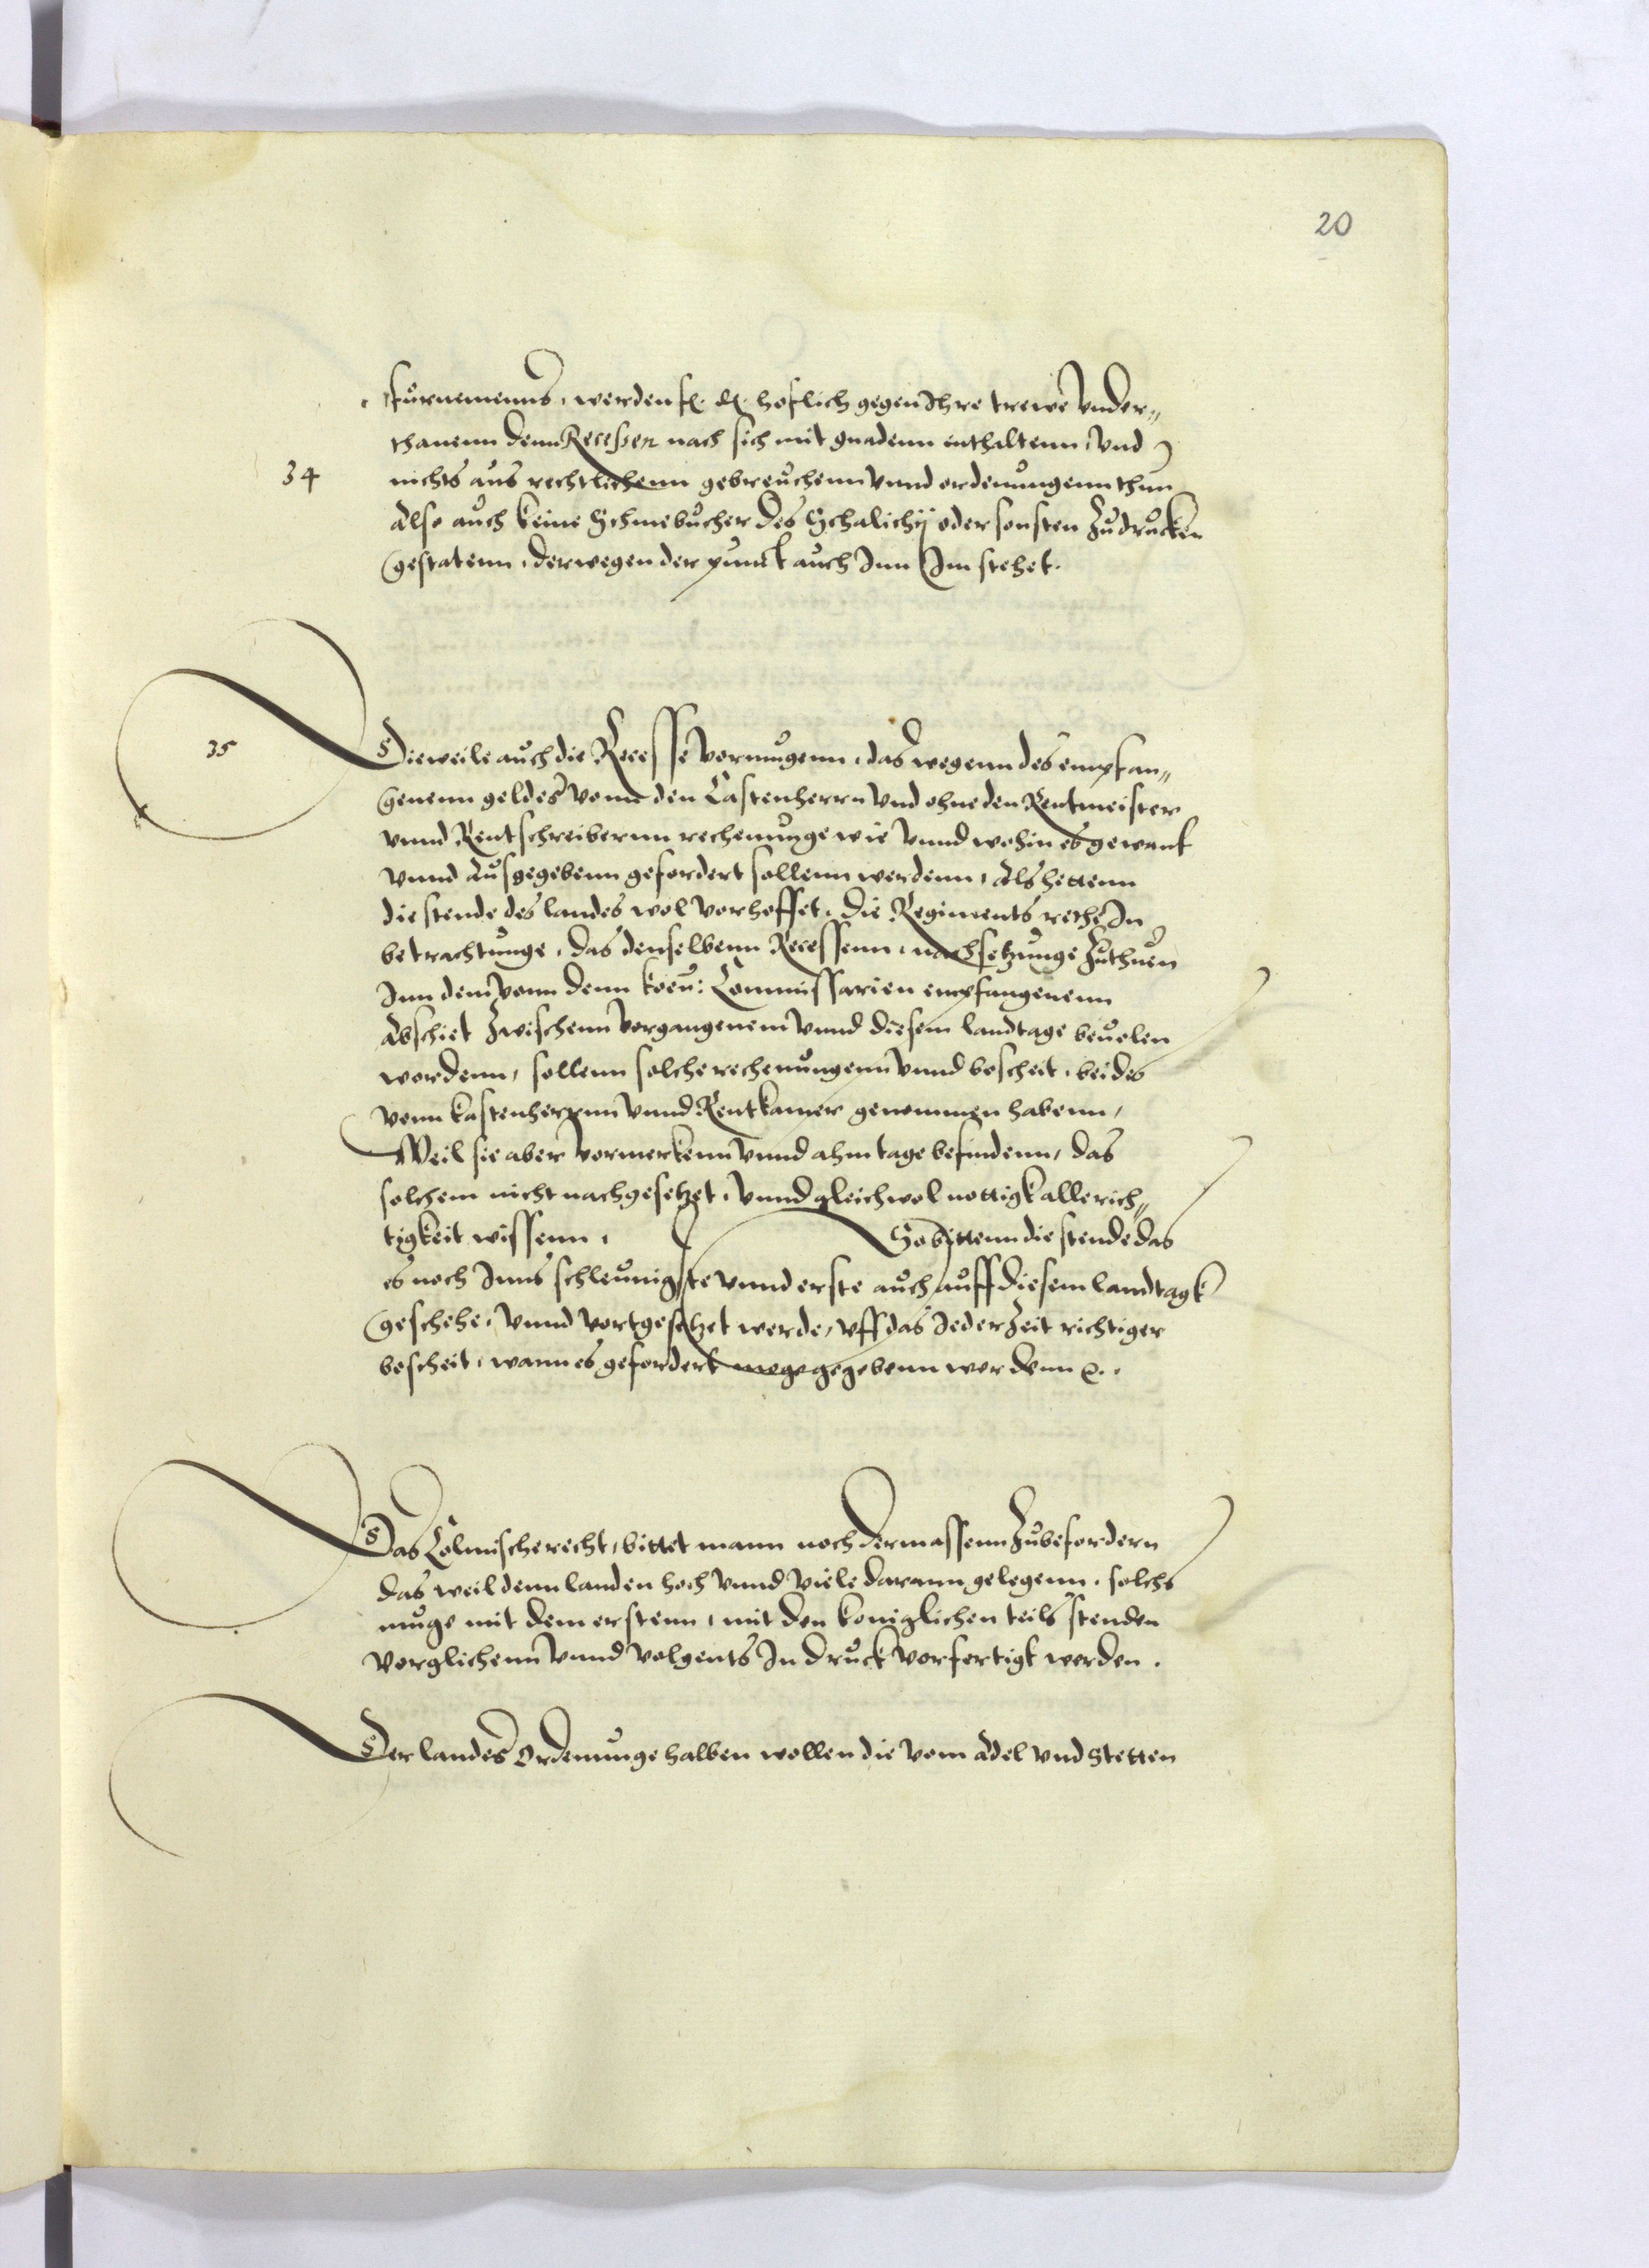 20
furnemenns, werden f. d. hoflich gegen Ihre trewe Vnder„
thanenn denn Recessen nach sich mit gnadenn enthaltenn, Vnd
34
nichts aus rechtlichenn gebreuchenn Vnnd ordenungenn thun
Also auch keine Schmebucher des Schalichij oder sonsten Zudrucken
gestatenn, derwegen der punct auch Inn Im stehet.
35
Dieweile auch die Recesse Vormugenn, das wegenn des empfan„
genenn geldes Vonn den Castenherrn Vnd ohne den Rentmeister
Vnnd Rentschreibernn rechenunge wie Vnnd wohin es gewant
Vnnd Ausgegebenn gefordert sollenn werdenn, Als hettenn
die stende des landes wol Vorhoffet, die Regiments rethe In
betrachtunge, das denselbenn Recessenn, nachsetzunge Zuthuen
Inn dem Vonn denn koen: Commissarien empfangenenn
Abschiet Zwischenn Vorgangenem Vnnd diesem landtage beuolen
wordenn, sollenn solche rechenungenn Vnnd bescheit, beides
Vonn kastenherrnn Vnnd Rentkamer genommen habenn,
Weil sie aber Vormerkenn Vnnd ahm tage befindenn, das
solchem nicht nachgesetzet, Vnnd gleichwol nottigk alle rich„
tigkeit wissenn, So bittenn die stende das
es noch Inns schleunigste Vnnd erste auch auff diesem landtagk
geschehe, Vnnd Vortgesetzet werde, Vff das Ieder Zeit richtiger
bescheit, wann es gefordert moge gegebenn werdenn
Das Colmische recht, bittet mann noch dermassenn Zubefordern
das weil denn landen hoch Vnnd Viele darann gelegenn, solchs
muge mit dem erstenn, mit den koniglichen teils stenden
Vorglichenn Vnnd Volgents In druck Vorfertigt werden.
Der landes Ordenunge halben wollen die Vom Adel Vnd Stetten